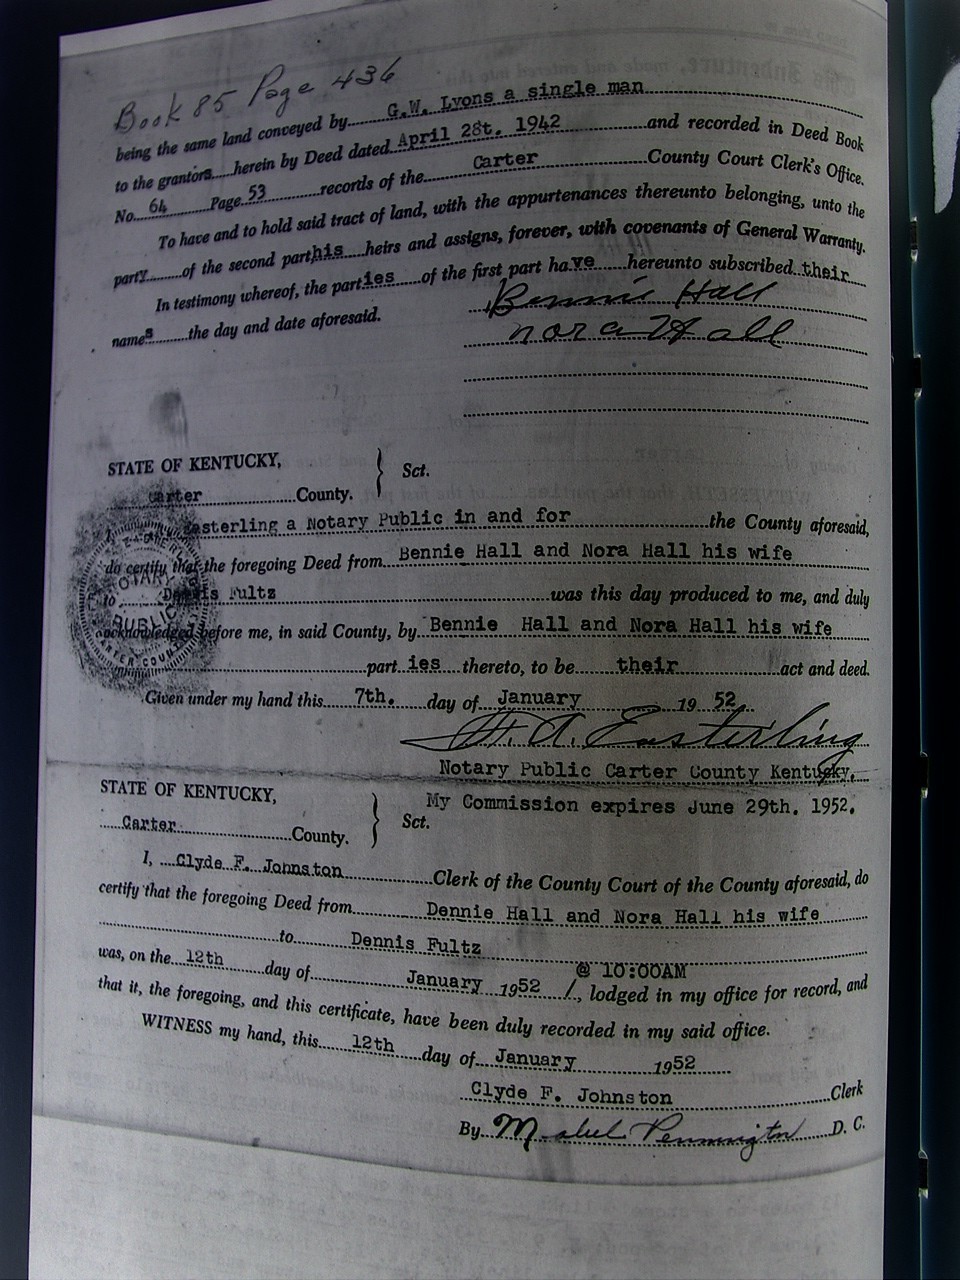 Book 85 Page 436
being the same land conveyed by G.W. Lyons a single man
to the grantors herein by Deed dated April 28t. 1942 and recorded in Deed Book
No. 64 Page 53 records of the Carter County Court Clerk's Office.
To have and to hold said tract of land, with the appurtenances thereunto belonging, unto the
party of the second part his heirs and assigns, forever, with covenants of General Warranty.
In testimony whereof, the parties of the first part have hereunto subscribed their
names the day and date aforesaid.
Bennie Hall
Nora Hall
STATE OF KENTUCKY,
Carter County. } Sct.
I, Easterling a Notary Public in and for the County aforesaid,
do certify that the foregoing Deed from Bennie Hall and Nora Hall his wife
to Dennis Fultz was this day produced to me, and duly
acknowledged before me, in said County, by Bennie Hall and Nora Hall his wife
part ies thereto, to be their act and deed.
NOTARY PUBLIC CARTER COUNTY
Given under my hand this 7th. day of January 19 52
H. A. Easterling
Notary Public Carter County Kentucky.
My Commission expires June 29th. 1952.
STATE OF KENTUCKY,
Carter County. } Sct.
I, Clyde F. Johnston Clerk of the County Court of the County aforesaid, do
certify that the foregoing Deed from Dennie Hall and Nora Hall his wife
to Dennis Fultz
was, on the 12th day of January 1952 @ 10:00AM /., lodged in my office for record, and
that it, the foregoing, and this certificate, have been duly recorded in my said office.
WITNESS my hand, this 12th day of January 1952
Clyde F. Johnston Clerk
By Mabel Pennington D. C.